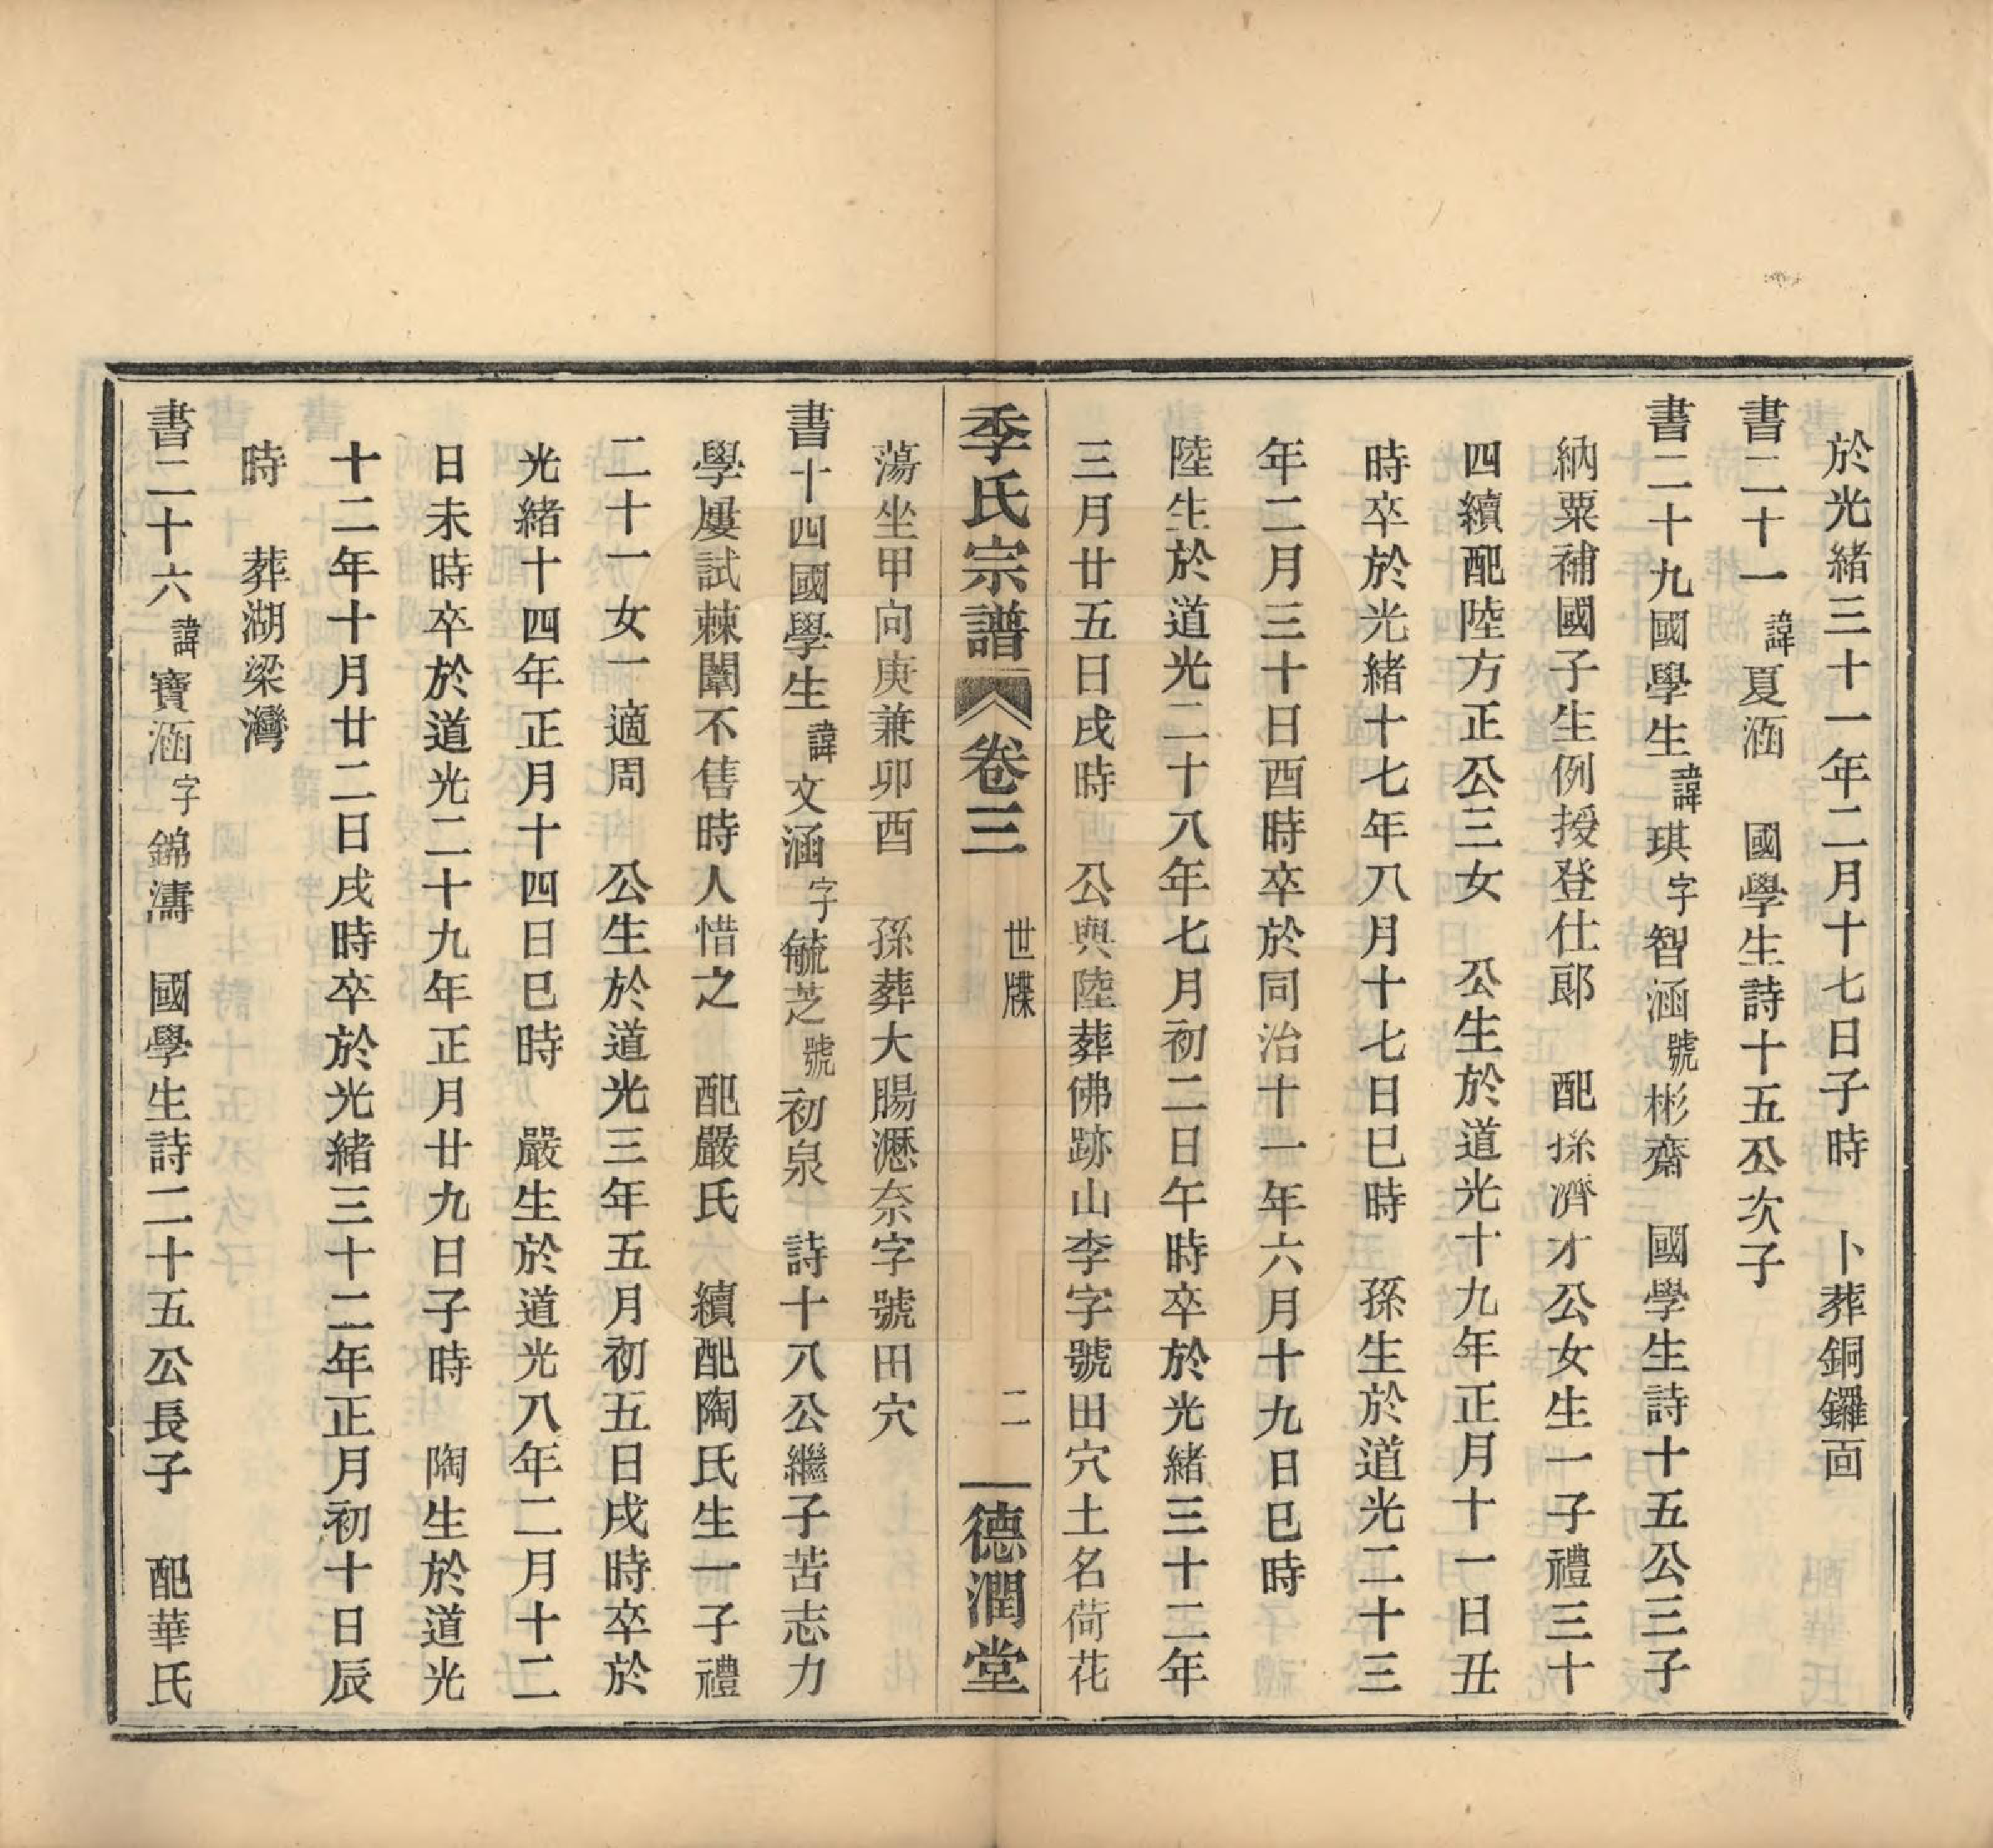 於光緒三十一年二月十七日子時　卜葬銅鑼靣
書二十一諱夏涵　國學生詩十五公次子
書二十九國學生諱琪字智涵號彬齋　國學生詩十五公三子
納粟補國子生例授登仕郎　配孫濟才公女生一子禮三十
四續配陸方正公三女　公生於道光十九年正月十一日丑
時卒於光緒十七年八月十七日巳時　孫生於道光二十三
年二月三十日酉時卒於同治十一年六月十九日巳時
陸生於道光二十八年七月初二日午時卒於光緒三十二年
三月廿五日戌時　公與陸葬佛跡山李字號田穴土名荷花
季氏宗譜　卷三　世牒　二　德潤堂
蕩坐甲向庚兼卯酉　孫葬大腸瀝柰字號田穴
書十四國學生諱文涵字毓芝號初泉　詩十八公繼子苦志力
學屢試棘闈不售時人惜之　配嚴氏　續配陶氏生一子禮
二十一女一適周　公生於道光三年五月初五日戌時卒於
光緒十四年正月十四日巳時　嚴生於道光八年二月十二
日未時卒於道光二十九年正月廿九日子時　陶生於道光
十二年十月廿二日戌時卒於光緒三十二年正月初十日辰
時　葬湖梁灣
書二十六諱寶涵字錦濤　國學生詩二十五公長子　配華氏